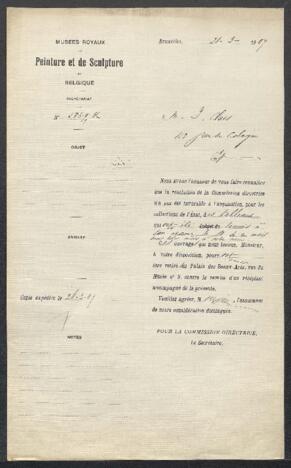 MUSÉES ROYAUX
DE
Peinture et de Sculpture
DE
BELGIQUE
SECRÉTARIAT
N°
OBJET
ANNEXE
Copie expédiée le 21-3-07
NOTES
Bruxelles, 21-3- 1907
M. J.
rue de Cologne
Nous avons l'honneur de vous faire connaître
que la résolution de la Commission directrice
n'a pas été favorable à l'acquisition, pour les
collections de l'État, des tableaux
qui ont été soumis à
son examen le
Cet ouvrage que nous tenons, Monsieur,
à votre disposition, pourra
être retiré du Palais des Beaux-Arts, rue du
Musée n° 9, contre la remise d'un récépissé
accompagné de la présente.
Veuillez agréer, M. l'assurance
de notre considération distinguée.
POUR LA COMMISSION DIRECTRICE,
Le Secrétaire,